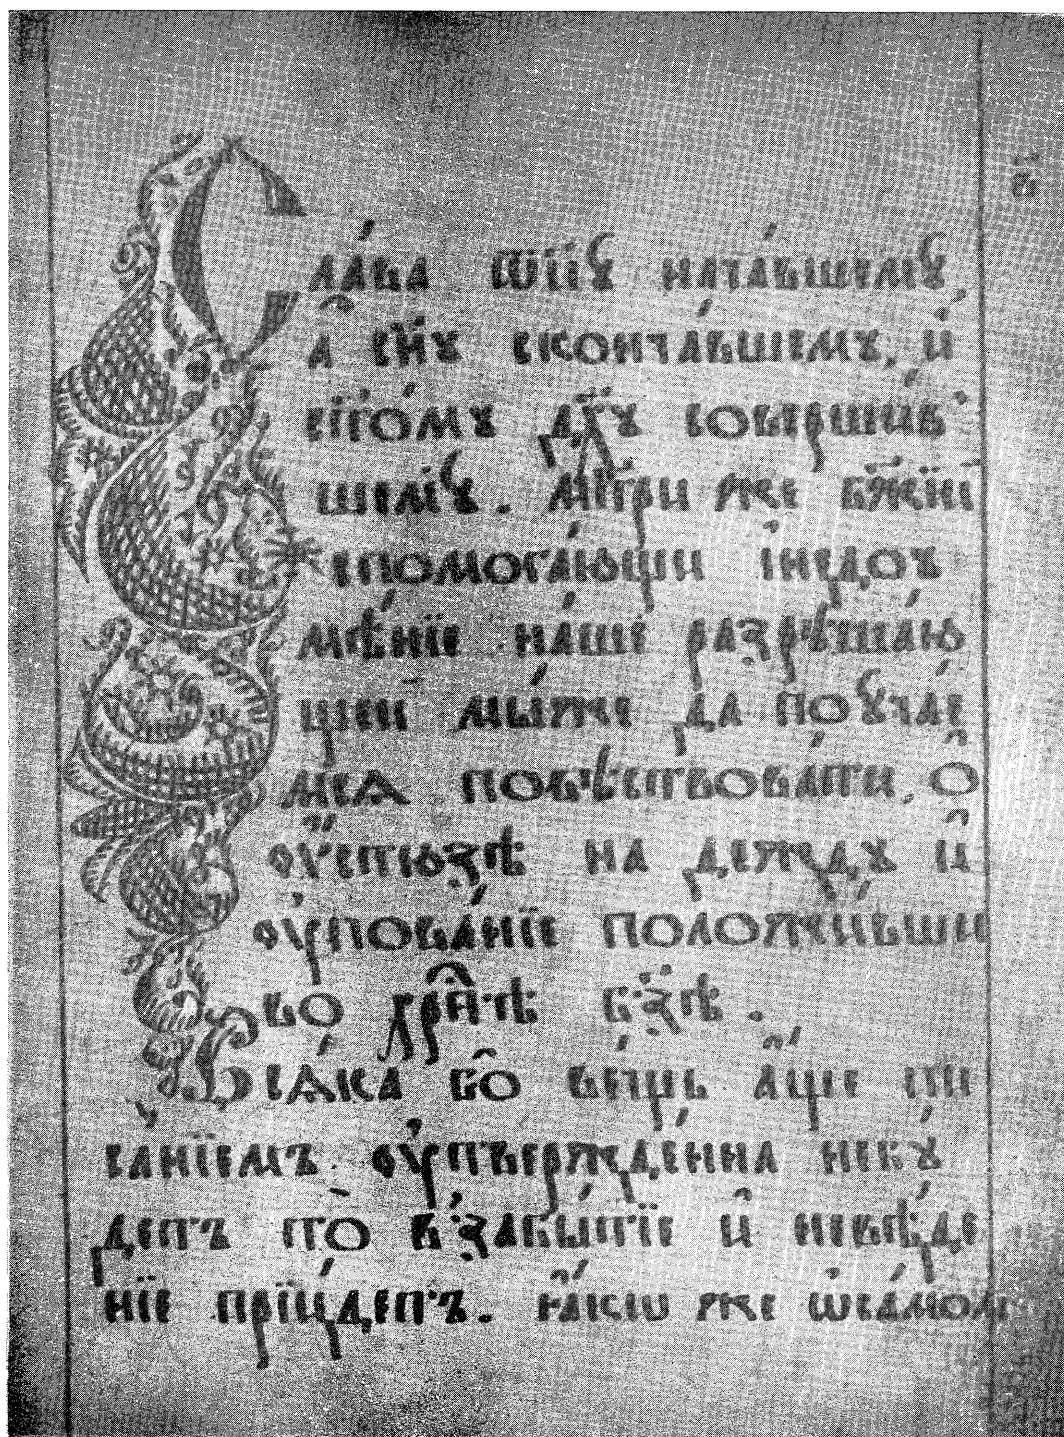 Слава ѿцꙋ начавшемꙋ,
а сн҃ꙋ скончавшемꙋ, и
ст҃омꙋ дх҃ꙋ совершив
шемꙋ. мт҃ри же бж҃їи
спомогающи и недоꙋ
мѣнїе наше разрѣшаю
щеи мыже да поꙋчае
мсѧ повѣствовати, о
на деждꙋ и
ѹпованїе положивши
во б҃зѣ.
Всѧка бо вещь аще пи
санїемъ ѹтвержденна небꙋ
детъ то в забытїе и невѣде
нїе прїидетъ. ꙗкѡ же